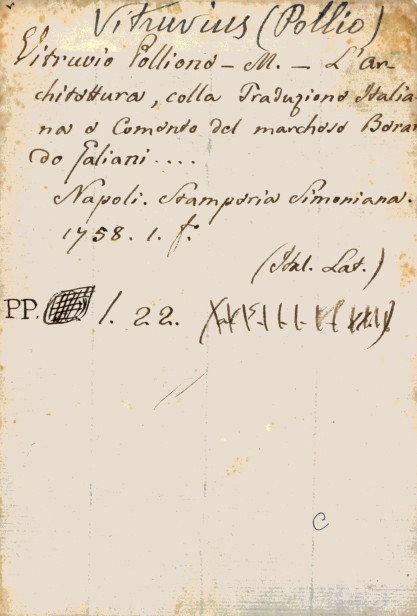 Vitruvius (Pollio)
Vitruvio Pollione - M. - L'Ar-
chitettura, colla Traduzione Italia
na e Comento del marchese Berar
do Galiani ....
Napoli. Stamperia Simoniana.
1758. 1. f.
(Ital. Lat.)
PP. 1. 22.
C